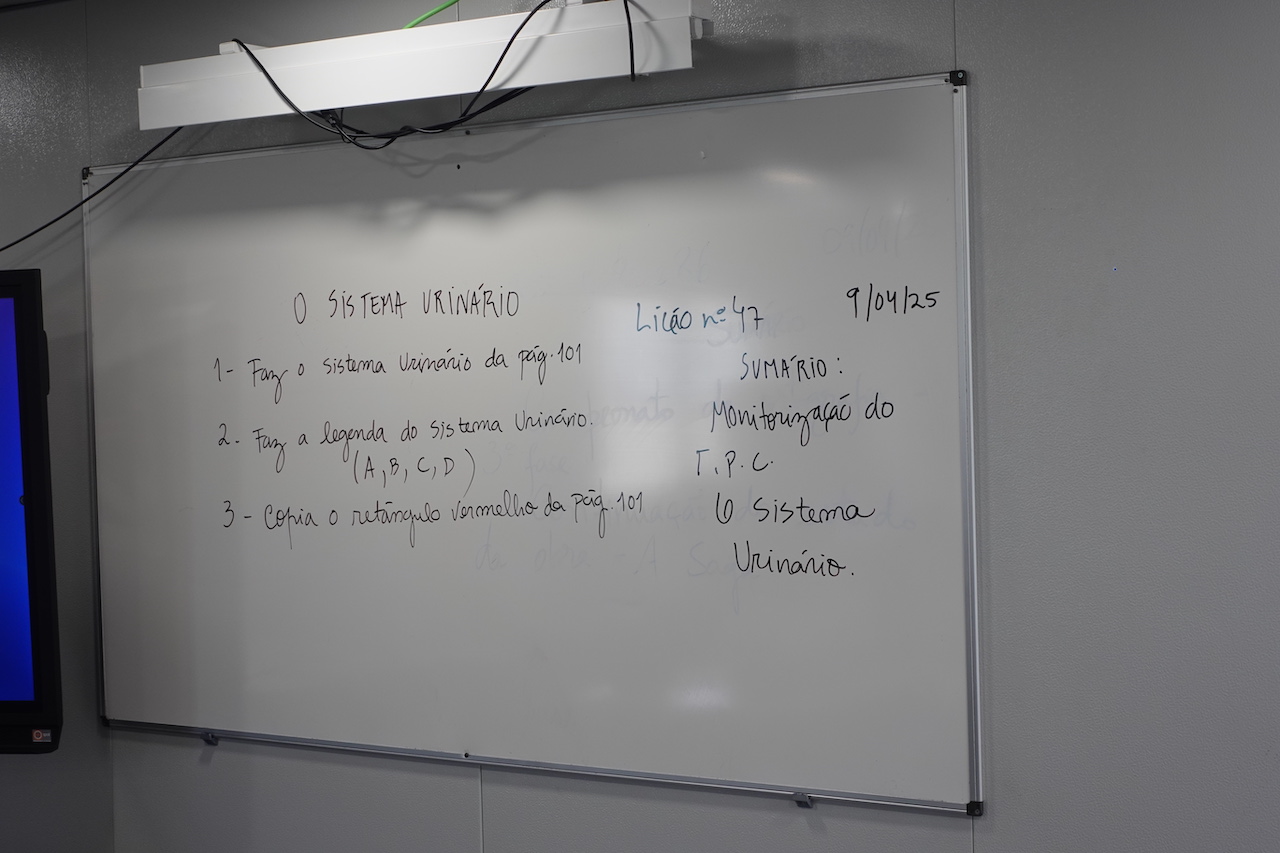 O SISTEMA URINÁRIO
1- Faz o sistema Urinário da pág. 101
2. Faz a legenda do sistema Urinário.
(A, B, C, D)
3 - Copia o retângulo vermelho da pág. 101
Lição nº 47
9/04/25
SUMÁRIO:
Monitorização do
T.P.C.
O sistema
Urinário.